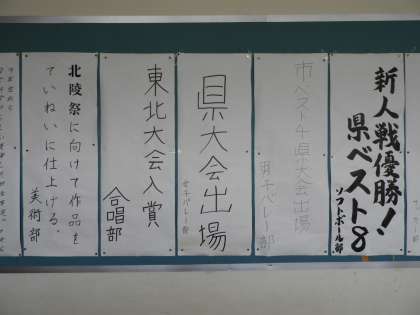 新人戦優勝!
県ベスト8
ソフトボール部
市ベスト4県大会出場
男子バレー部
県大会出場
女子バレー部
東北大会入賞
合唱部
北陵祭に向けて作品を
ていねいに仕上げる。
美術部